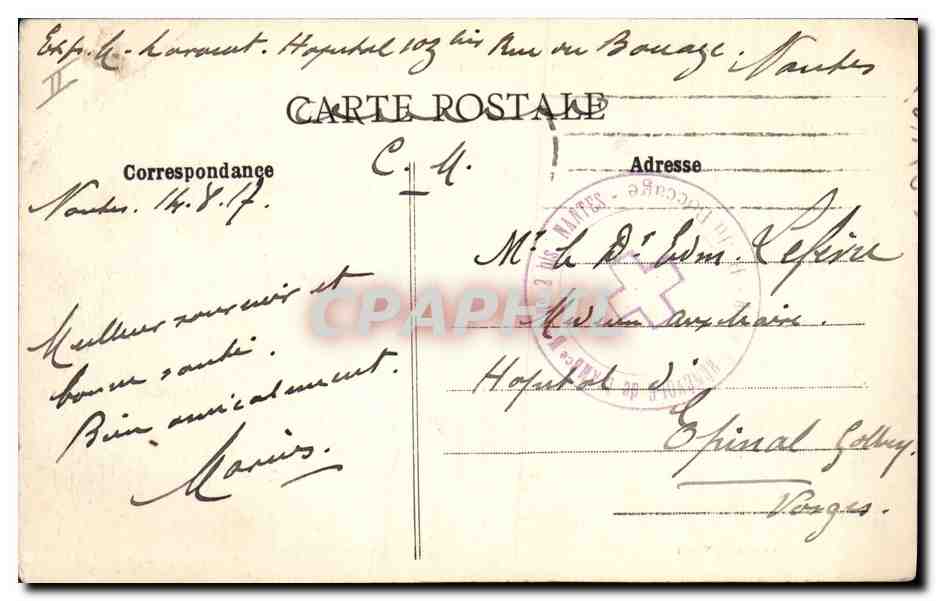 Exp. M. Hopital 103 bis Rue du Bocage. Nantes
II
CARTE POSTALE
C. M.
Correspondance
Adresse
Nantes. 14.8.17.
Mr le Dr Edm. Lefèvre
Medecin auxiliaire.
Hopital d'
Epinal Golbey.
Vosges.
Meilleur souvenir et
bonne santé.
Bien amicalement.
Marius.
NANTES - Bocage
CPAPHIL